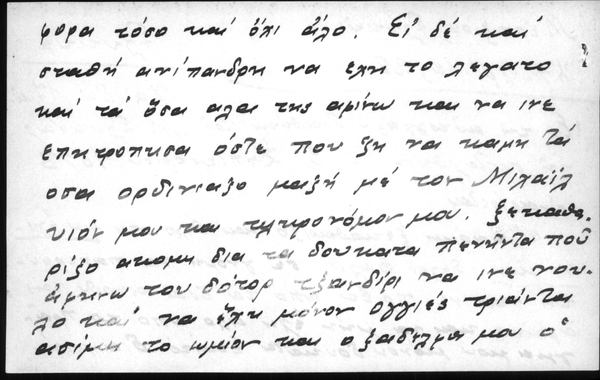 φορα τόσο καί όχι άλο. Εί δέ καί
σταθή ανίπανδρη να εχη το λεγατο
καί τά όσα αλα της αφίνω και να ινε
επητροπησα όστε που ζη να καμη τά
οσα ορδινιαζο μαζή μέ τον Μιχαϊλ
υιόν μου και κληρονόμον μου. ξεκαθα-
ρίζο ακομη δια τα δουκατα πενήντα πού
άφηνω του δότορ τζανδίρι να ινε νου-
λο καί να έχη μόνον ογγιές τριάντα
ασίμη το ωμίον και ο εξαδελφων μου ο